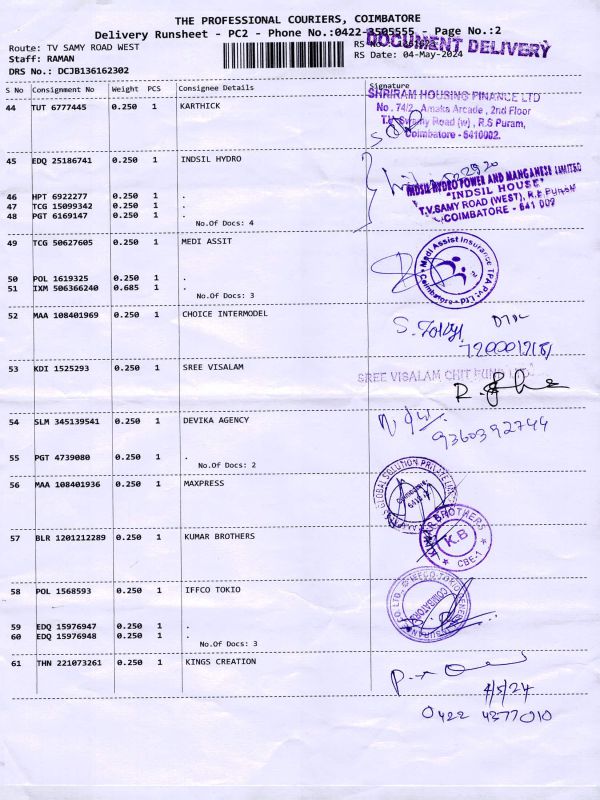 THE PROFESSIONAL COURIERS, COIMBATORE
Delivery Runsheet - PC2 - Phone No.:0422-3505555 - Page No.:2
DOCUMENT DELIVERY
Route: TV SAMY ROAD WEST
RS No
Staff: RAMAN
RS Date: 04-May-2024
DRS No.: DCJB136162302
S No Consignment No Weight PCS Consignee Details Signature
44 TUT 6777445 0.250 1 KARTHICK
SHRIRAM HOUSING FINANCE LTD
No. 74/2, Amaka Arcade, 2nd Floor
T.V. Swamy Road (w), R.S Puram,
Coimbatore - 641002.
45 EDQ 25186741 0.250 1 INDSIL HYDRO
46 HPT 6922277 0.250 1 .
47 TCG 15099342 0.250 1 .
48 PGT 6169147 0.250 1 .
No.Of Docs: 4
INDSIL HYDRO POWER AND MANGANESE LIMITED
"INDSIL HOUSE"
T.V.SAMY ROAD (WEST), R.S.PURAM
COIMBATORE - 641 002
49 TCG 50627605 0.250 1 MEDI ASSIT
50 POL 1619325 0.250 1 .
51 IXM 506366240 0.685 1 .
No.Of Docs: 3
Medi Assist Insurance TPA Pvt. Ltd
Coimbatore
52 MAA 108401969 0.250 1 CHOICE INTERMODEL
53 KDI 1525293 0.250 1 SREE VISALAM
SREE VISALAM CHIT FUND LTD.
54 SLM 345139541 0.250 1 DEVIKA AGENCY
9360392744
55 PGT 4739080 0.250 1 .
No.Of Docs: 2
56 MAA 108401936 0.250 1 MAXPRESS
GLOBAL SOLUTION PRIVATE
57 BLR 1201212289 0.250 1 KUMAR BROTHERS
KUMAR BROTHERS
K.B
CBE-1
58 POL 1568593 0.250 1 IFFCO TOKIO
59 EDQ 15976947 0.250 1 .
60 EDQ 15976948 0.250 1 .
No.Of Docs: 3
IFFCO-TOKIO GENERAL INSURANCE CO. LTD.
COIMBATORE
61 THN 221073261 0.250 1 KINGS CREATION
4/5/24
0422 4377010